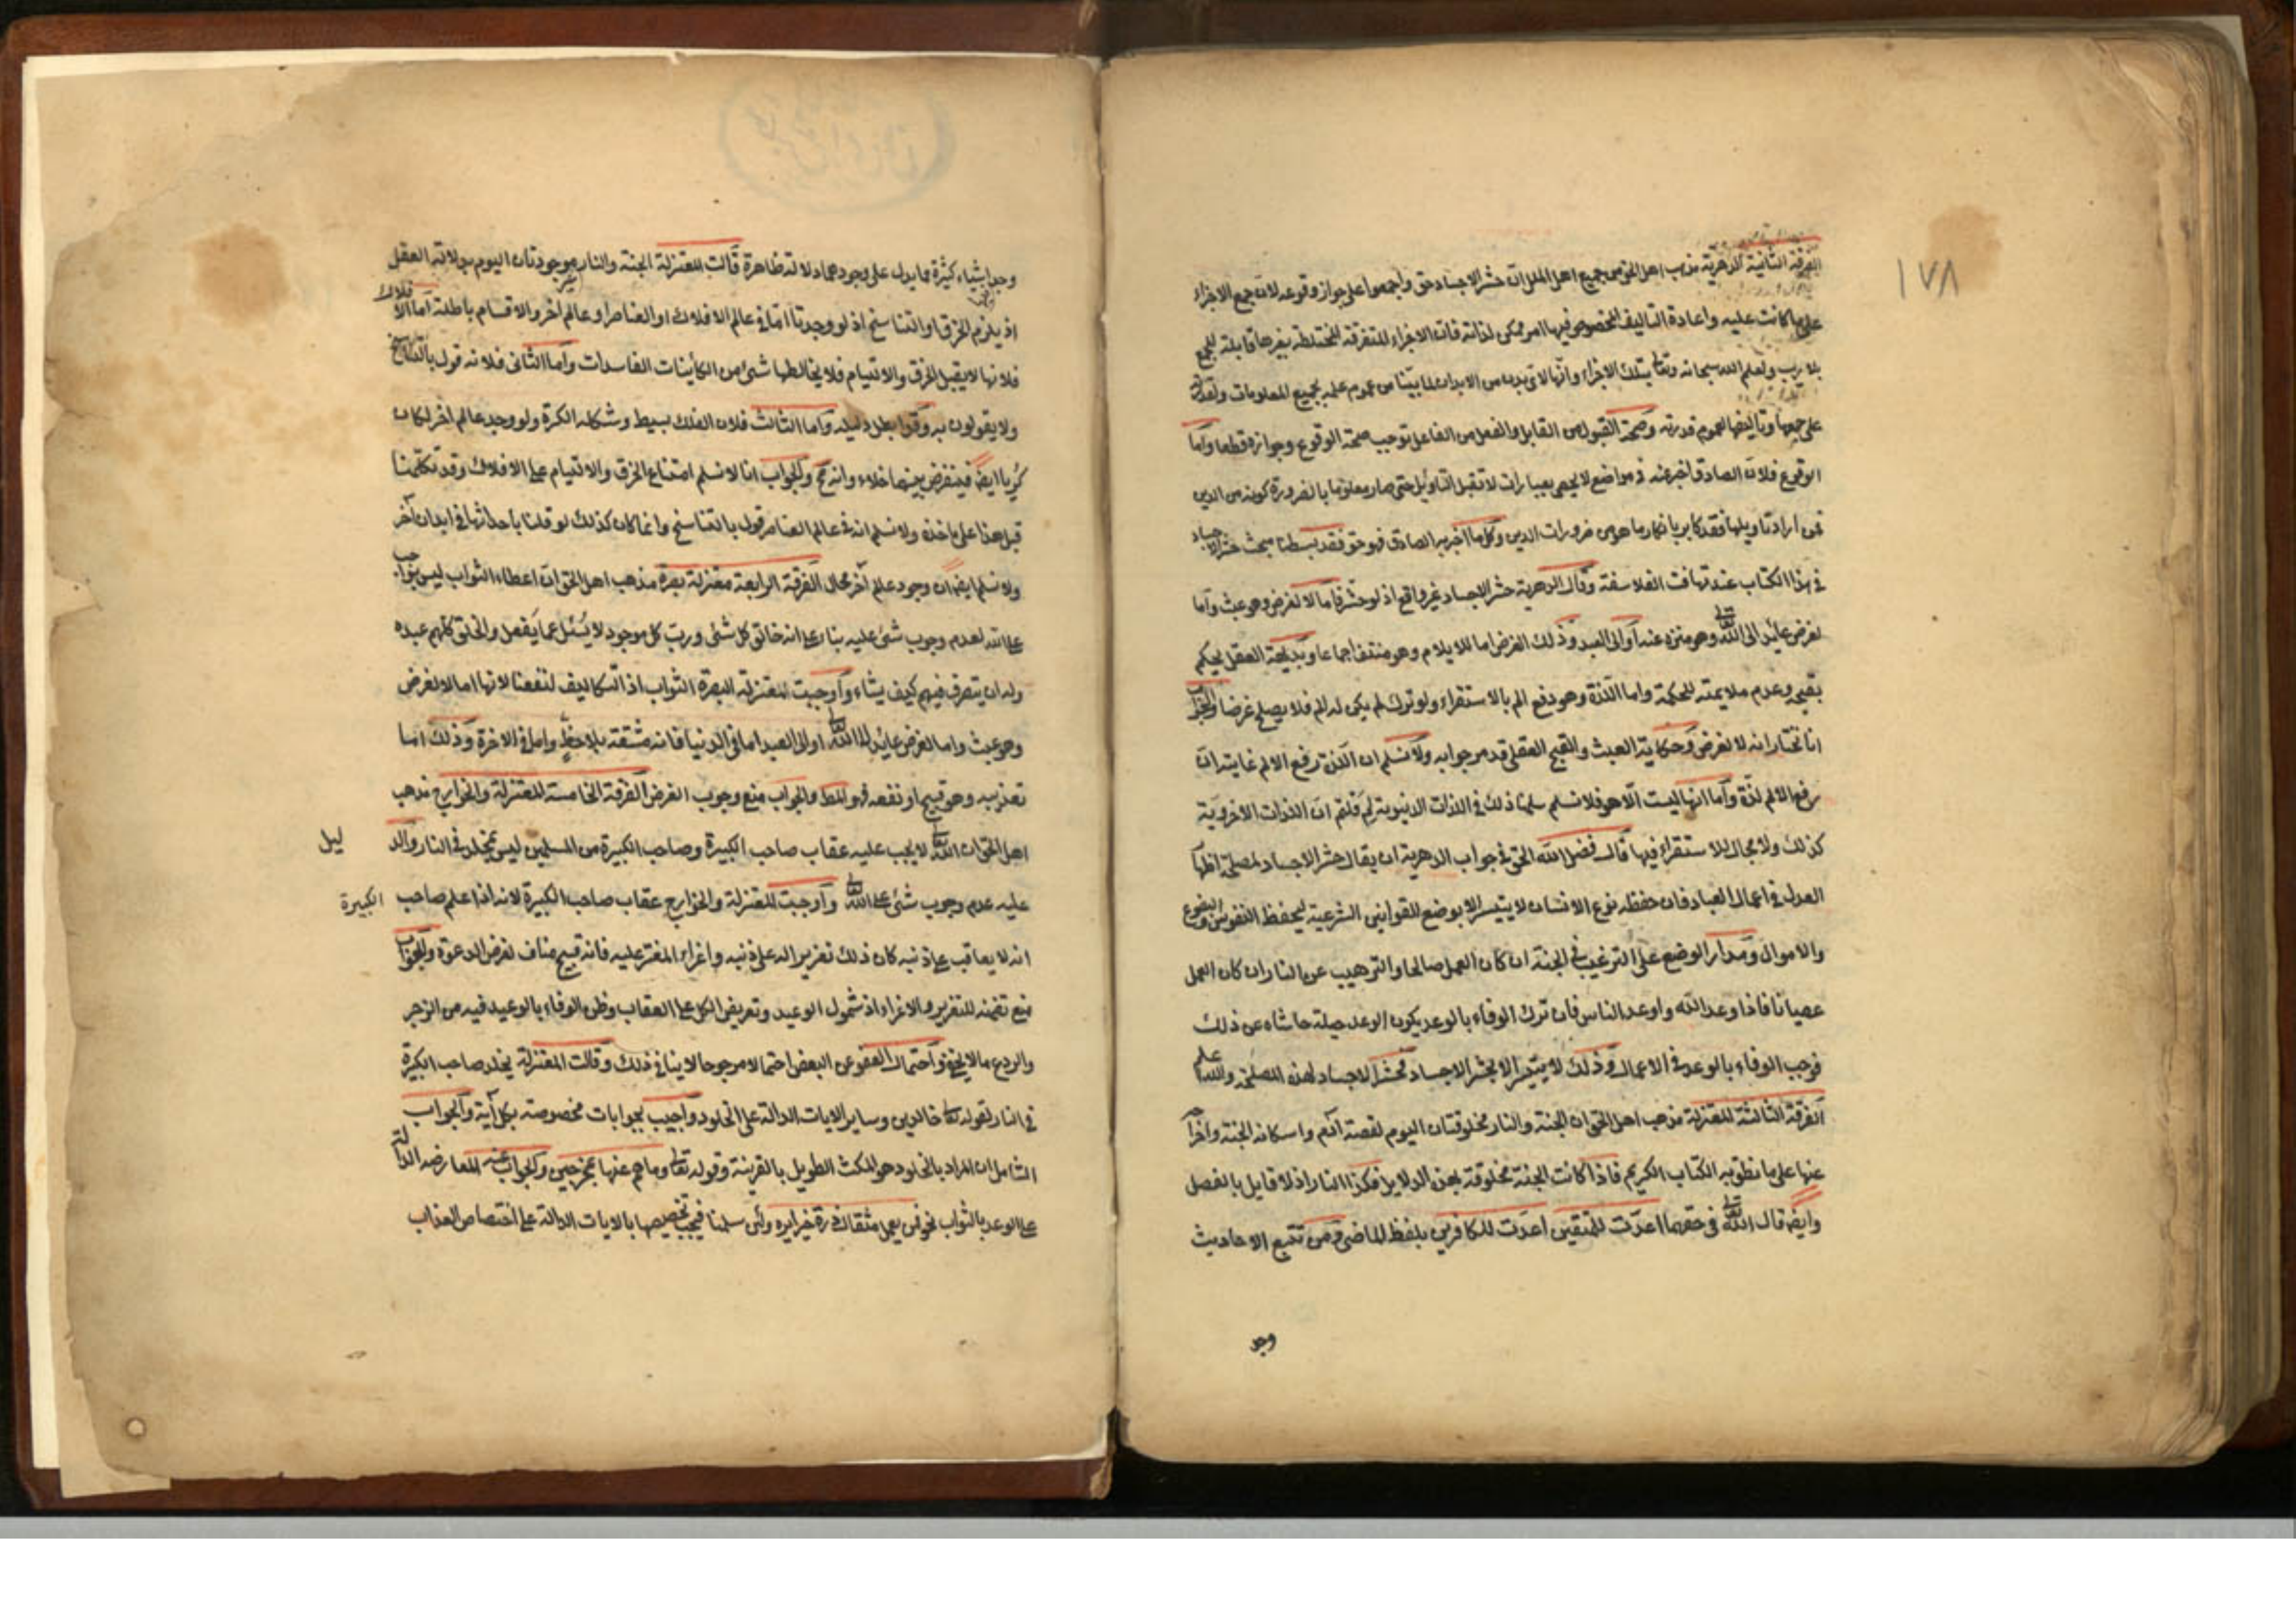 ١٧٨
الفرقة الثانية الدهرية مذهب اهل الحق من جميع اهل الملل ان حشر الاجساد حق واجمعوا على جواز وقوعه لان جمع الاجزاء
على ما كانت عليه واعادة التاليف المخصوص فيها امر ممكن لذاته فان الاجزاء المتفرقة المختلطة بغيرها قابلة للجمع
بلا ريب ولعلم الله سبحانه وتعالى بتلك الاجزاء وانها لاى بدن من الابدان لما بيّنا من عموم علمه بجميع المعلومات ولقدرته
على جمعها وتاليفها لعموم قدرته وصحة القبول من القابل والفعل من الفاعل توجب صحة الوقوع وجوازه قطعا واما
الوقوع فلان الصادق اخبر عنه فى مواضع لا يحصى بعبارات لا تقبل التاويل حتى صار معلوما بالضرورة كونه من الدين
فمن اراد تاويلها فقد كابر بانكار ما هو من ضرورات الدين وكل ما اخبر به الصادق فهو حق فقد بسطنا مبحث حشر الاجساد
فى هذا الكتاب عند تهافت الفلاسفة وقال الدهرية حشر الاجساد غير واقع اذ لو حشر فاما لا لغرض وهو عبث واما
لغرض عائد الى الله تعالى وهو منزه عنه او الى العبد وذلك الغرض اما للايلام وهو منتف اجماعا وبديهة العقل يحكم
بقبحه وعدم ملايمته للحكمة واما اللذة وهو دفع الم بالاستقراء ولو ترك لم يكن له الم فلا يصلح غرضا والجواب
انا نختار انه لا لغرض وحكاية العبث والقبح العقلى قد مر جوابه ولا نسلم ان اللذة رفع الالم غايته ان
رفع الالم لذة واما انها ليست الا هو فلا نسلم سلمنا ذلك فى اللذات الدنيوية لم قلتم ان اللذات الاخروية
كذلك ولا مجال للاستقراء فيها قال فضل الله الحق فى جواب الدهرية ان يقال حشر الاجساد لمصلحة اظهار
العدل فى اعمال العباد فان حفظ نوع الانسان لا يتيسر الا بوضع القوانين الشرعية ليحفظ النفوس والبضوع
والاموال ومدار الوضع على الترغيب فى الجنة ان كان العمل صالحا والترهيب عن النار ان كان العمل
عصيانا فاذا وعد الله واوعد الناس فان ترك الوفاء بالوعد يكون الوعد حيلة حاشاه عن ذلك
فوجب الوفاء بالوعد فى الاعمال وذلك لا يتيسر الا بحشر الاجساد فحشر الاجساد لهذه المصلحة والله اعلم
الفرقة الثالثة المعتزلة مذهب اهل الحق ان الجنة والنار مخلوقتان اليوم لقصة آدم واسكانه الجنة واخراجه
عنها على ما نطق به الكتاب الكريم فاذا كانت الجنة مخلوقة بهذه الدلايل فكذا النار اذ لا قايل بالفصل
وايضا قال الله تعالى فى حقهما اعدّت للمتقين اعدّت للكافرين بلفظ الماضى ومن تتبع الاحاديث
وجد
وجد اشياء كثيرة مما يدل على وجودهما دلالة ظاهرة قالت المعتزلة الجنة والنار غير موجودتان اليوم بدلالة العقل
اذ يلزم الخرق او التناسخ اذ لو وجدتا اما فى عالم الافلاك او العناصر او عالم آخر والاقسام باطلة اما الافلاك
فلانها لا يقبل الخرق والالتيام فلا يخالطها شئ من الكاينات الفاسدات واما الثانى فلانه قول بالتناسخ
ولا يقولون به وقد ابطل دليله واما الثالث فلان الفلك بسيط وشكله الكرة ولو وجد عالم اخر لكان
كريا ايضا فينفرض بينهما خلاء وانه مح والجواب انا لا نسلم امتناع الخرق والالتيام على الافلاك وقد تكلمنا
قبل هذا على ماخذه ولا نسلم انه فى عالم العناصر قول بالتناسخ وانما كان كذلك لو قلنا باحداثها فى ابدان آخر
ولا نسلم ايضا ان وجود عالم آخر محال الفرقة الرابعة معتزلة بصرة مذهب اهل الحق ان اعطاء الثواب ليس بواجب
على الله لعدم وجوب شئ عليه بناء على انه خالق كل شئ وربّ كل موجود لا يُسئل عما يفعل والخلق كلهم عبده
وله ان يتصرف فيهم كيف يشاء واوجبت المعتزلة البصرة الثواب اذ التكاليف لنفعنا لانها اما لا لغرض
وهو عبث واما لغرض عائد الى الله تعالى او الى العبد اما فى الدنيا فانه مشقة بلا حظ واما فى الاخرة وذلك اما
تعذيبه وهو قبيح او نفعه فهو المط والجواب منع وجوب الغرض الفرقة الخامسة المعتزلة والخوارج مذهب
اهل الحق ان الله تعالى لا يجب عليه عقاب صاحب الكبيرة وصاحب الكبيرة من المسلمين ليس بمخلد فى النار والدليل
عليه عدم وجوب شئ على الله تعالى واوجبت المعتزلة والخوارج عقاب صاحب الكبيرة لانه اذا علم صاحب الكبيرة
انه لا يعاقب على ذنبه كان ذلك تغريرا له على ذنبه واغراء المغتر عليه فانه قبيح مناف لغرض الدعوة والجواب
منع تضمنه للتغرير والاغراء اذ شمول الوعيد وتعريض الكل على العقاب وظن الوفاء بالوعيد فيه من الزجر
والردع ما لا يخفى واحتمال العفو عن البعض احتمالا مرجوحا لا ينافى ذلك وقالت المعتزلة يخلد صاحب الكبيرة
فى النار لقوله تعالى خالدين وساير الايات الدالة على الخلود واجيب بجوابات مخصوصة بكل آية والجواب
الشامل ان المراد بالخلود هو المكث الطويل بالقرينة وقوله تعالى وما هم عنها بمخرجين والجواب عنه المعارضه الدالة
على الوعد بالثواب نحو فمن يعمل مثقال ذرة خيرا يره ولئن سلمنا فيجب تخصيصها بالايات الدالة على اختصاص العذاب